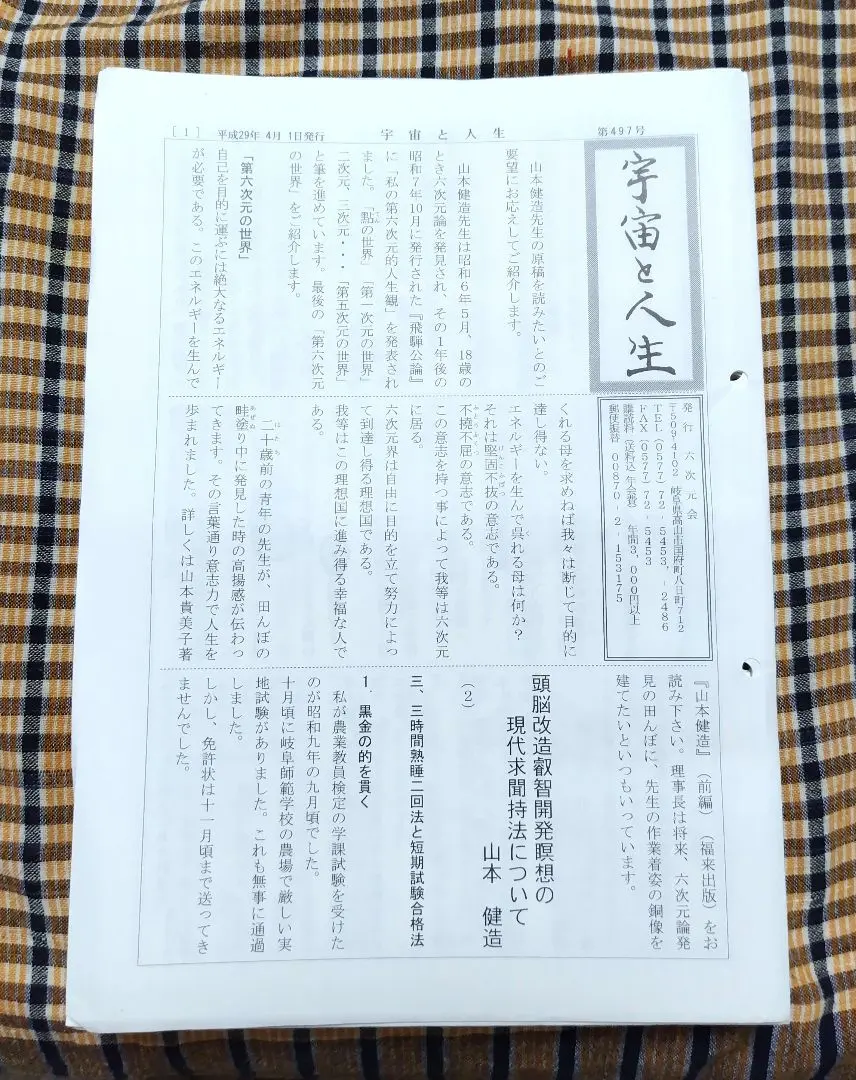 [1] 平成29年 4月 1日発行 宇宙と人生 第497号
宇宙と人生
発行 六次元会
〒509-4102 岐阜県高山市国府町八日町712
TEL(0577)72-5453,-2486
FAX(0577)72-5453
購読料(送料込・年会費) 年間3,000円以上
郵便振替 00870-2-153175
山本健造先生の原稿を読みたいとのご
要望にお応えしてご紹介します。
山本健造先生は昭和6年5月、18歳の
とき六次元論を発見され、その1年後の
昭和7年10月に発行された『飛騨公論』
に「私の第六次元的人生観」を発表され
ました。「點の世界」「第一次元の世界」
二次元、三次元・・・「第五次元の世界」
と筆を進めています。最後の「第六次元
の世界」をご紹介します。
「第六次元の世界」
自己を目的に運ぶには絶大なるエネルギー
が必要である。このエネルギーを生んで
くれる母を求めねば我々は断じて目的に
達し得ない。
エネルギーを生んで呉れる母は何か?
それは堅固不抜の意志である。
不撓不屈の意志である。
この意志を持つ事によって我等は六次元
に居る。
六次元界は自由に目的を立て努力によっ
て到達し得る理想国である。
我等はこの理想国に進み得る幸福な人で
ある。
二十歳前の青年の先生が、田んぼの
畦塗り中に発見した時の高揚感が伝わっ
てきます。その言葉通り意志力で人生を
歩まれました。詳しくは山本貴美子著
『山本健造』(前編)(福来出版)をお
読み下さい。理事長は将来、六次元論発
見の田んぼに、先生の作業着姿の銅像を
建てたいといつもいっています。
頭脳改造叡智開発瞑想の
現代求聞持法について
山本 健造
(2)
三、三時間熟睡二回法と短期試験合格法
1. 黒金の的を貫く
私が農業教員検定の学課試験を受けた
のが昭和九年の九月頃でした。
十月頃に岐阜師範学校の農場で厳しい実
地試験がありました。これも無事に通過
しました。
しかし、免許状は十一月頃まで送ってき
ませんでした。